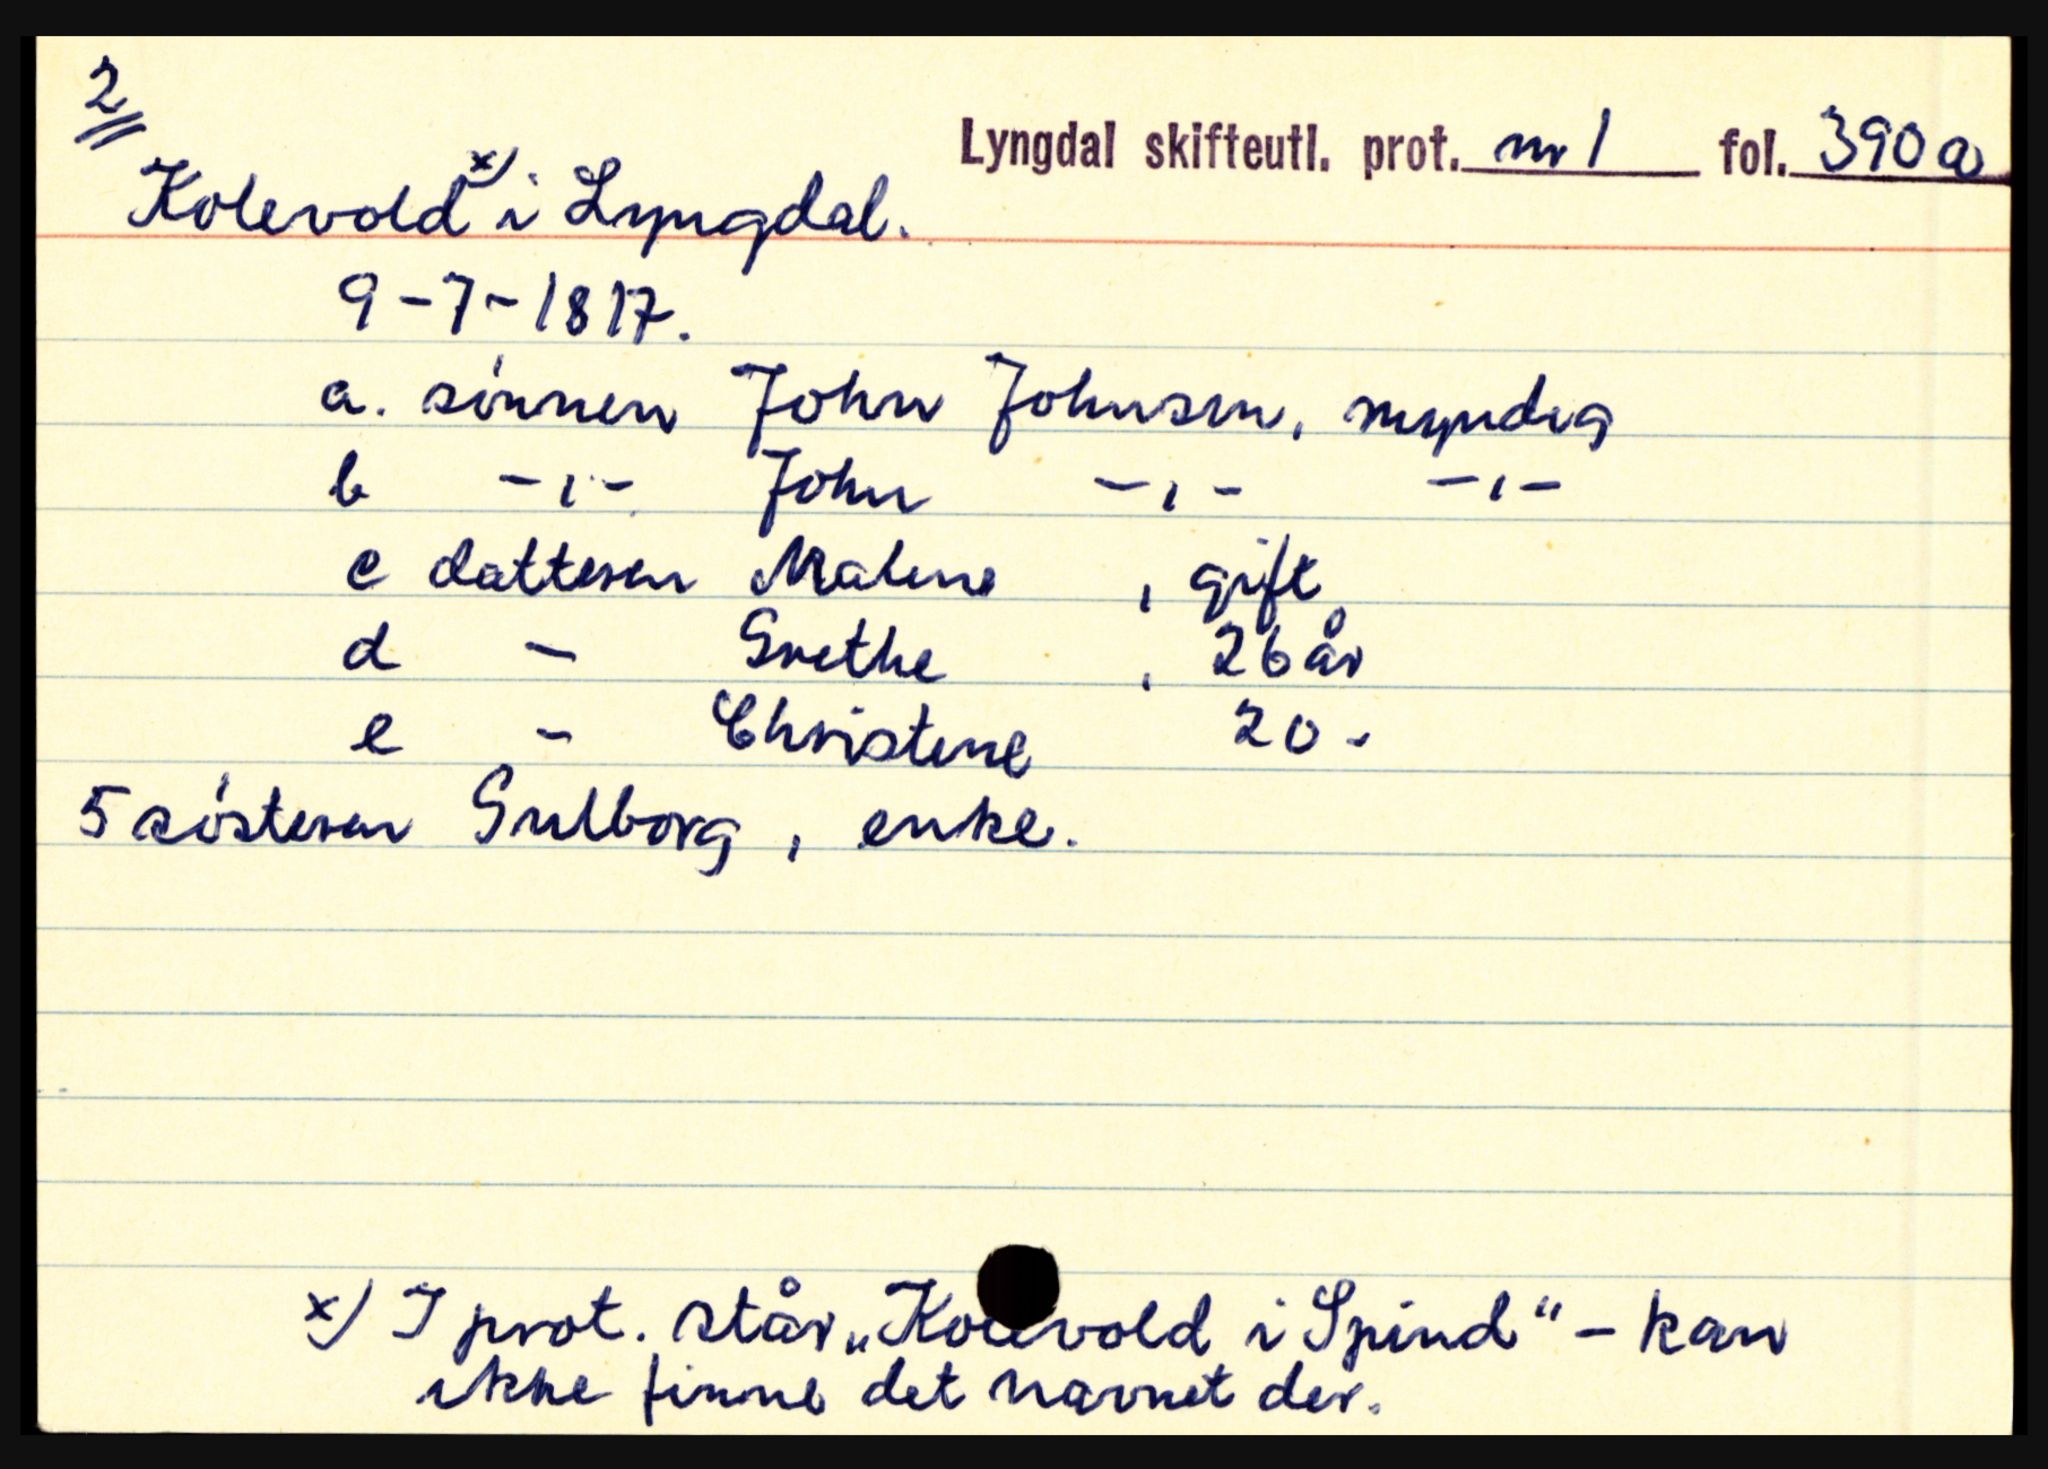 2
Lyngdal skifteutl. prot. nr 1 fol. 390a
Kolevold x) i Lyngdal.
9-7-1817.
a. sønnen John Johnsen, myndig
b -"- John -"- -"-
c datteren Malene, gift
d - Grethe, 26 år
e - Christene 20 -
5 søsteren Gulborg, enke.
x) I prot. står „Kolevold i Spind“ - kan
ikke finne det navnet der.